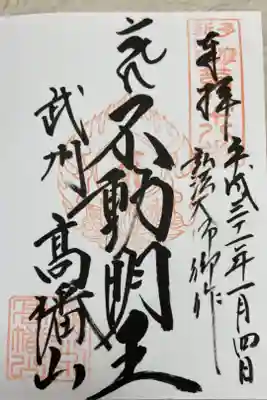 奉拝 平成三十一年一月四日
弘法大師御作
不動明王
武州 高幡山